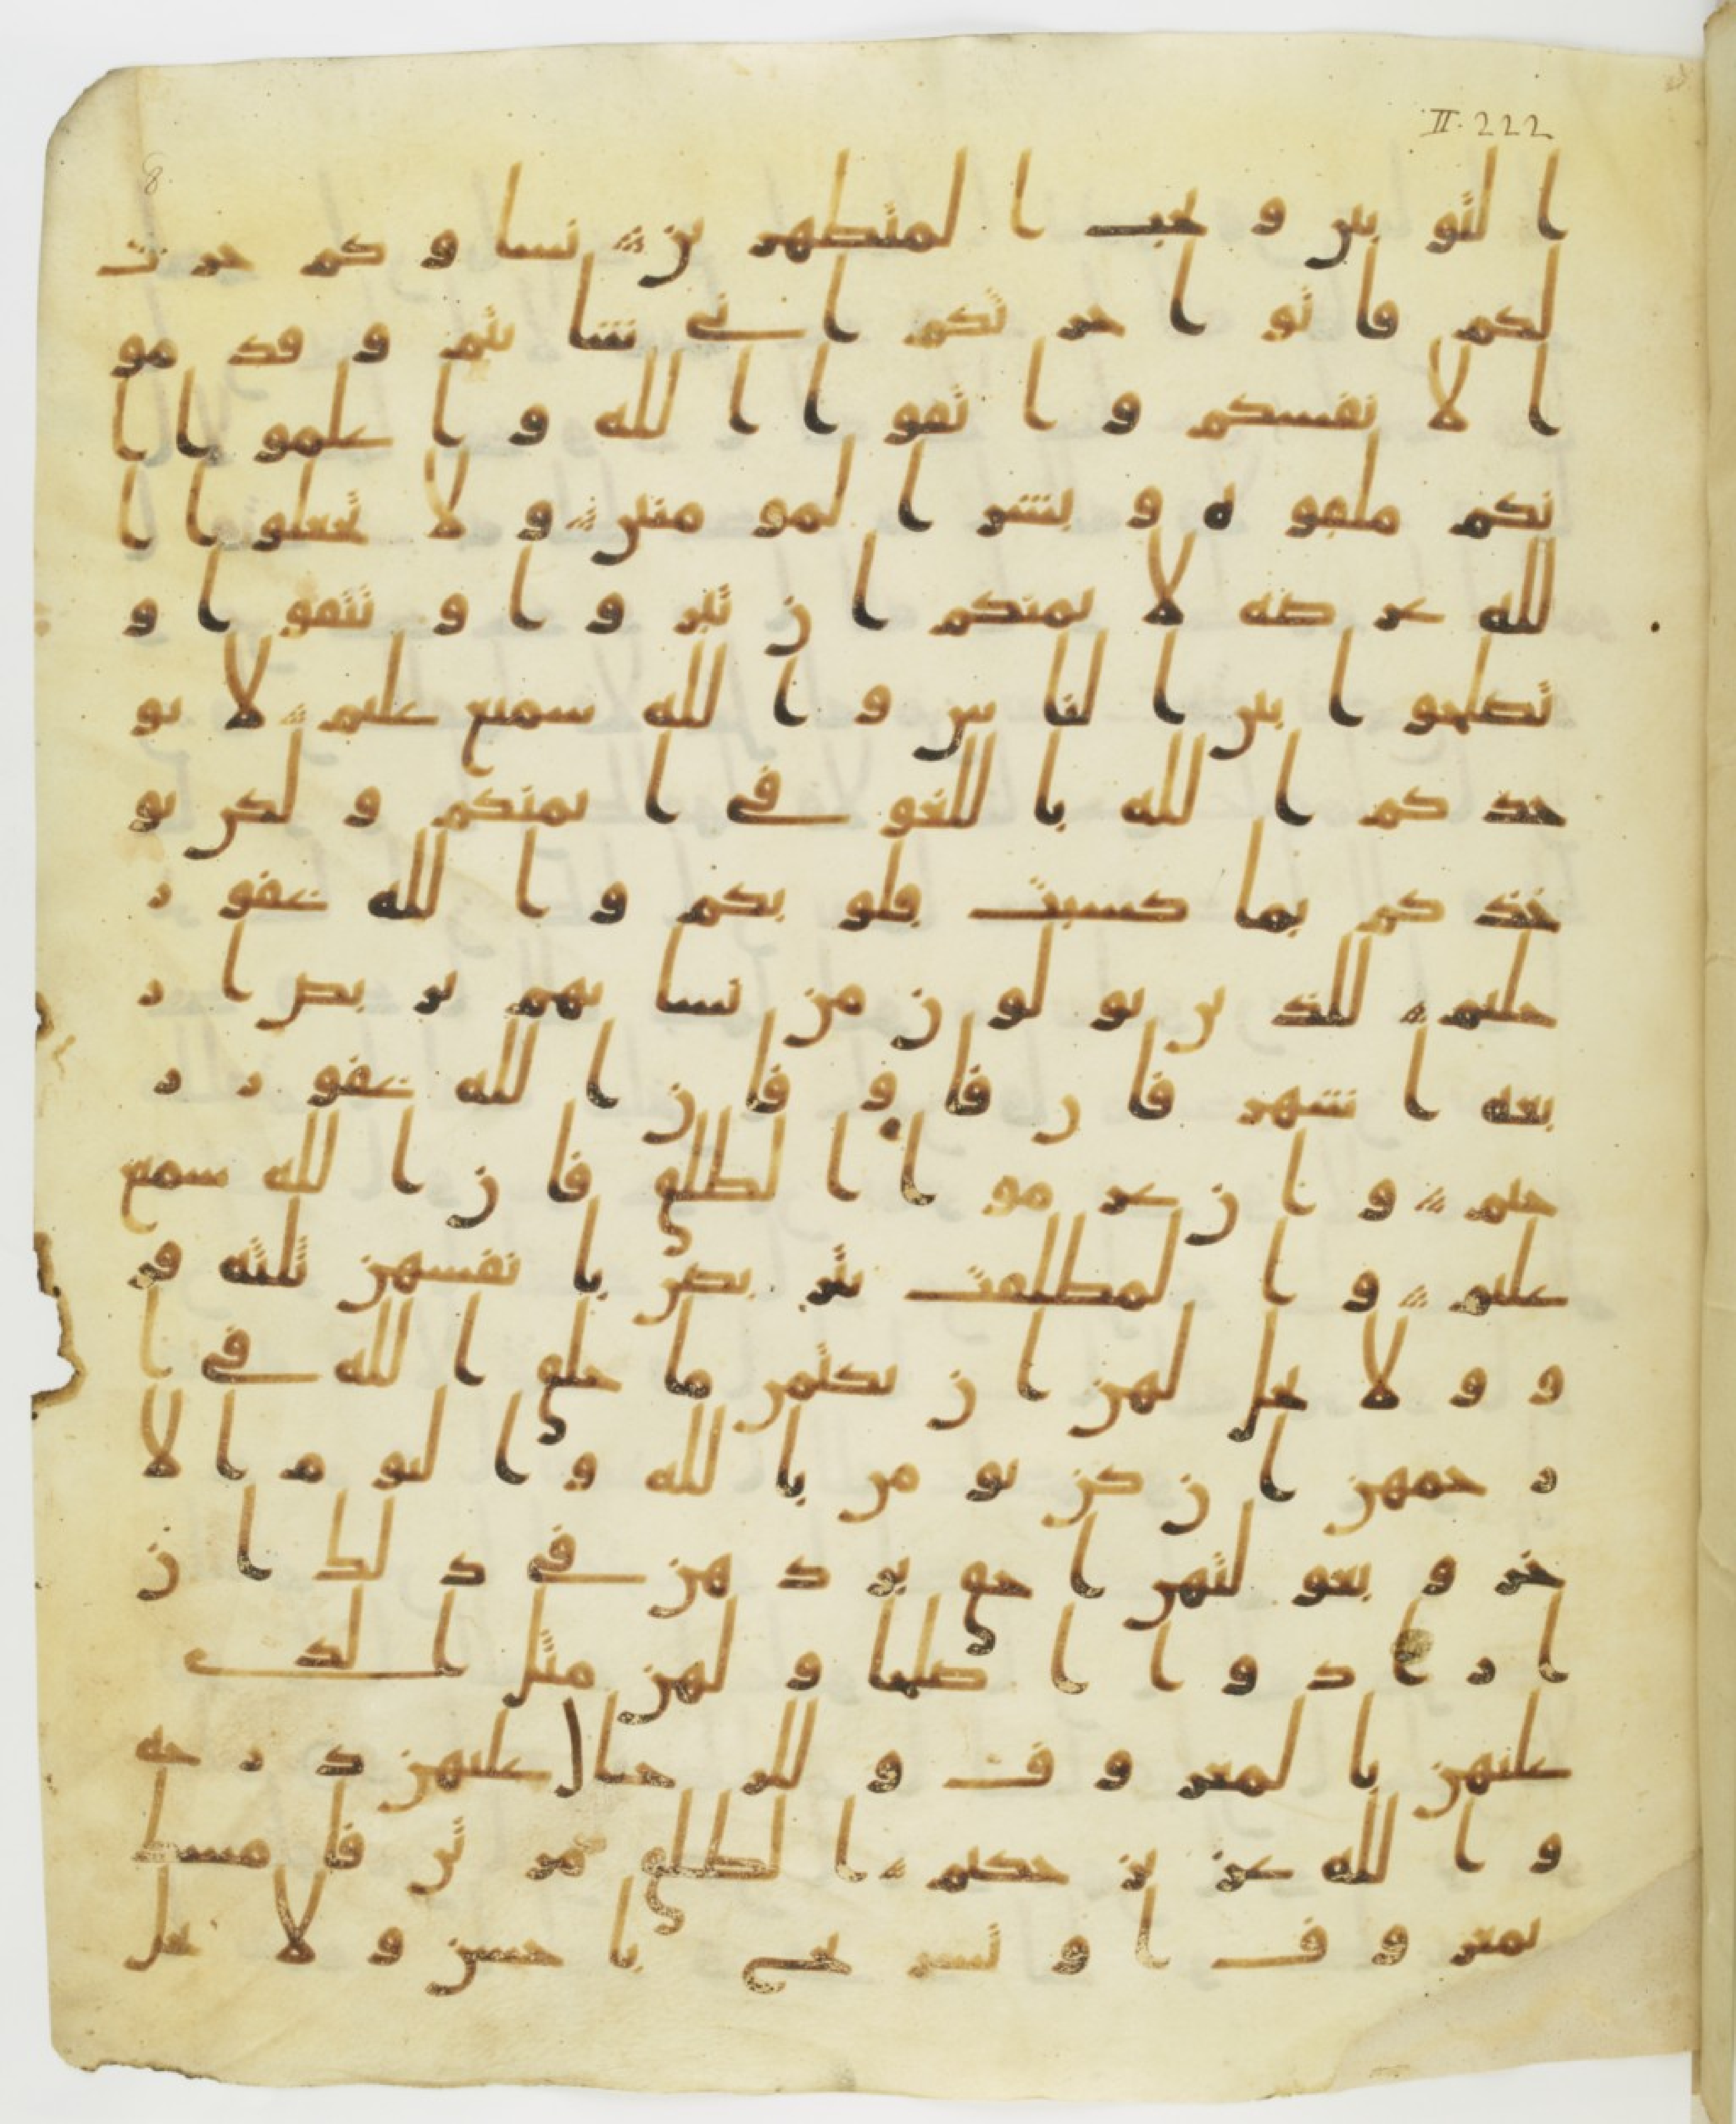 التوبين ويحب المتطهرين نساوكم حرث
لكم فاتوا حرثكم انى شايتم وقدمو
ا لانفسكم واتقوا الله واعلموا ا
نكم ملقوه وبشر المومنين ولا تجعلوا ا
لله عرضه لايمنكم ان تبروا وتتقوا و
تصلحوا بين الناس والله سميع عليم لا يو
خذكم الله باللغو في ايمنكم ولكن يو
خذكم بما كسبت قلوبكم والله غفور
حليم للذين يولون من نسايهم تربص ار
بعه اشهر فان فاو فان الله غفور ر
حيم وان عزموا الطلق فان الله سميع
عليم والمطلقت يتربصن بانفسهن ثلثه قر
و ولا يحل لهن ان يكتمن ما خلق الله في ا
رحمهن ان كن يومن بالله واليوم الا
خر وبعولتهن احق بردهن في ذلك ان
ارادوا اصلحا ولهن مثل الذي
عليهن بالمعروف وللرجال عليهن درجه
والله عزيز حكيم الطلق مرتن فامسك
بمعروف او تسريح باحسن ولا يحل
II. 222
8